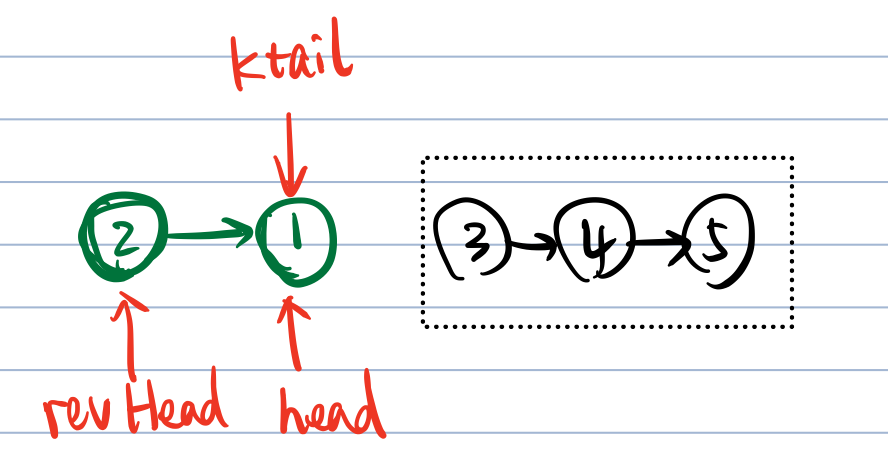 ktail
2 1 3 4 5
revHead head